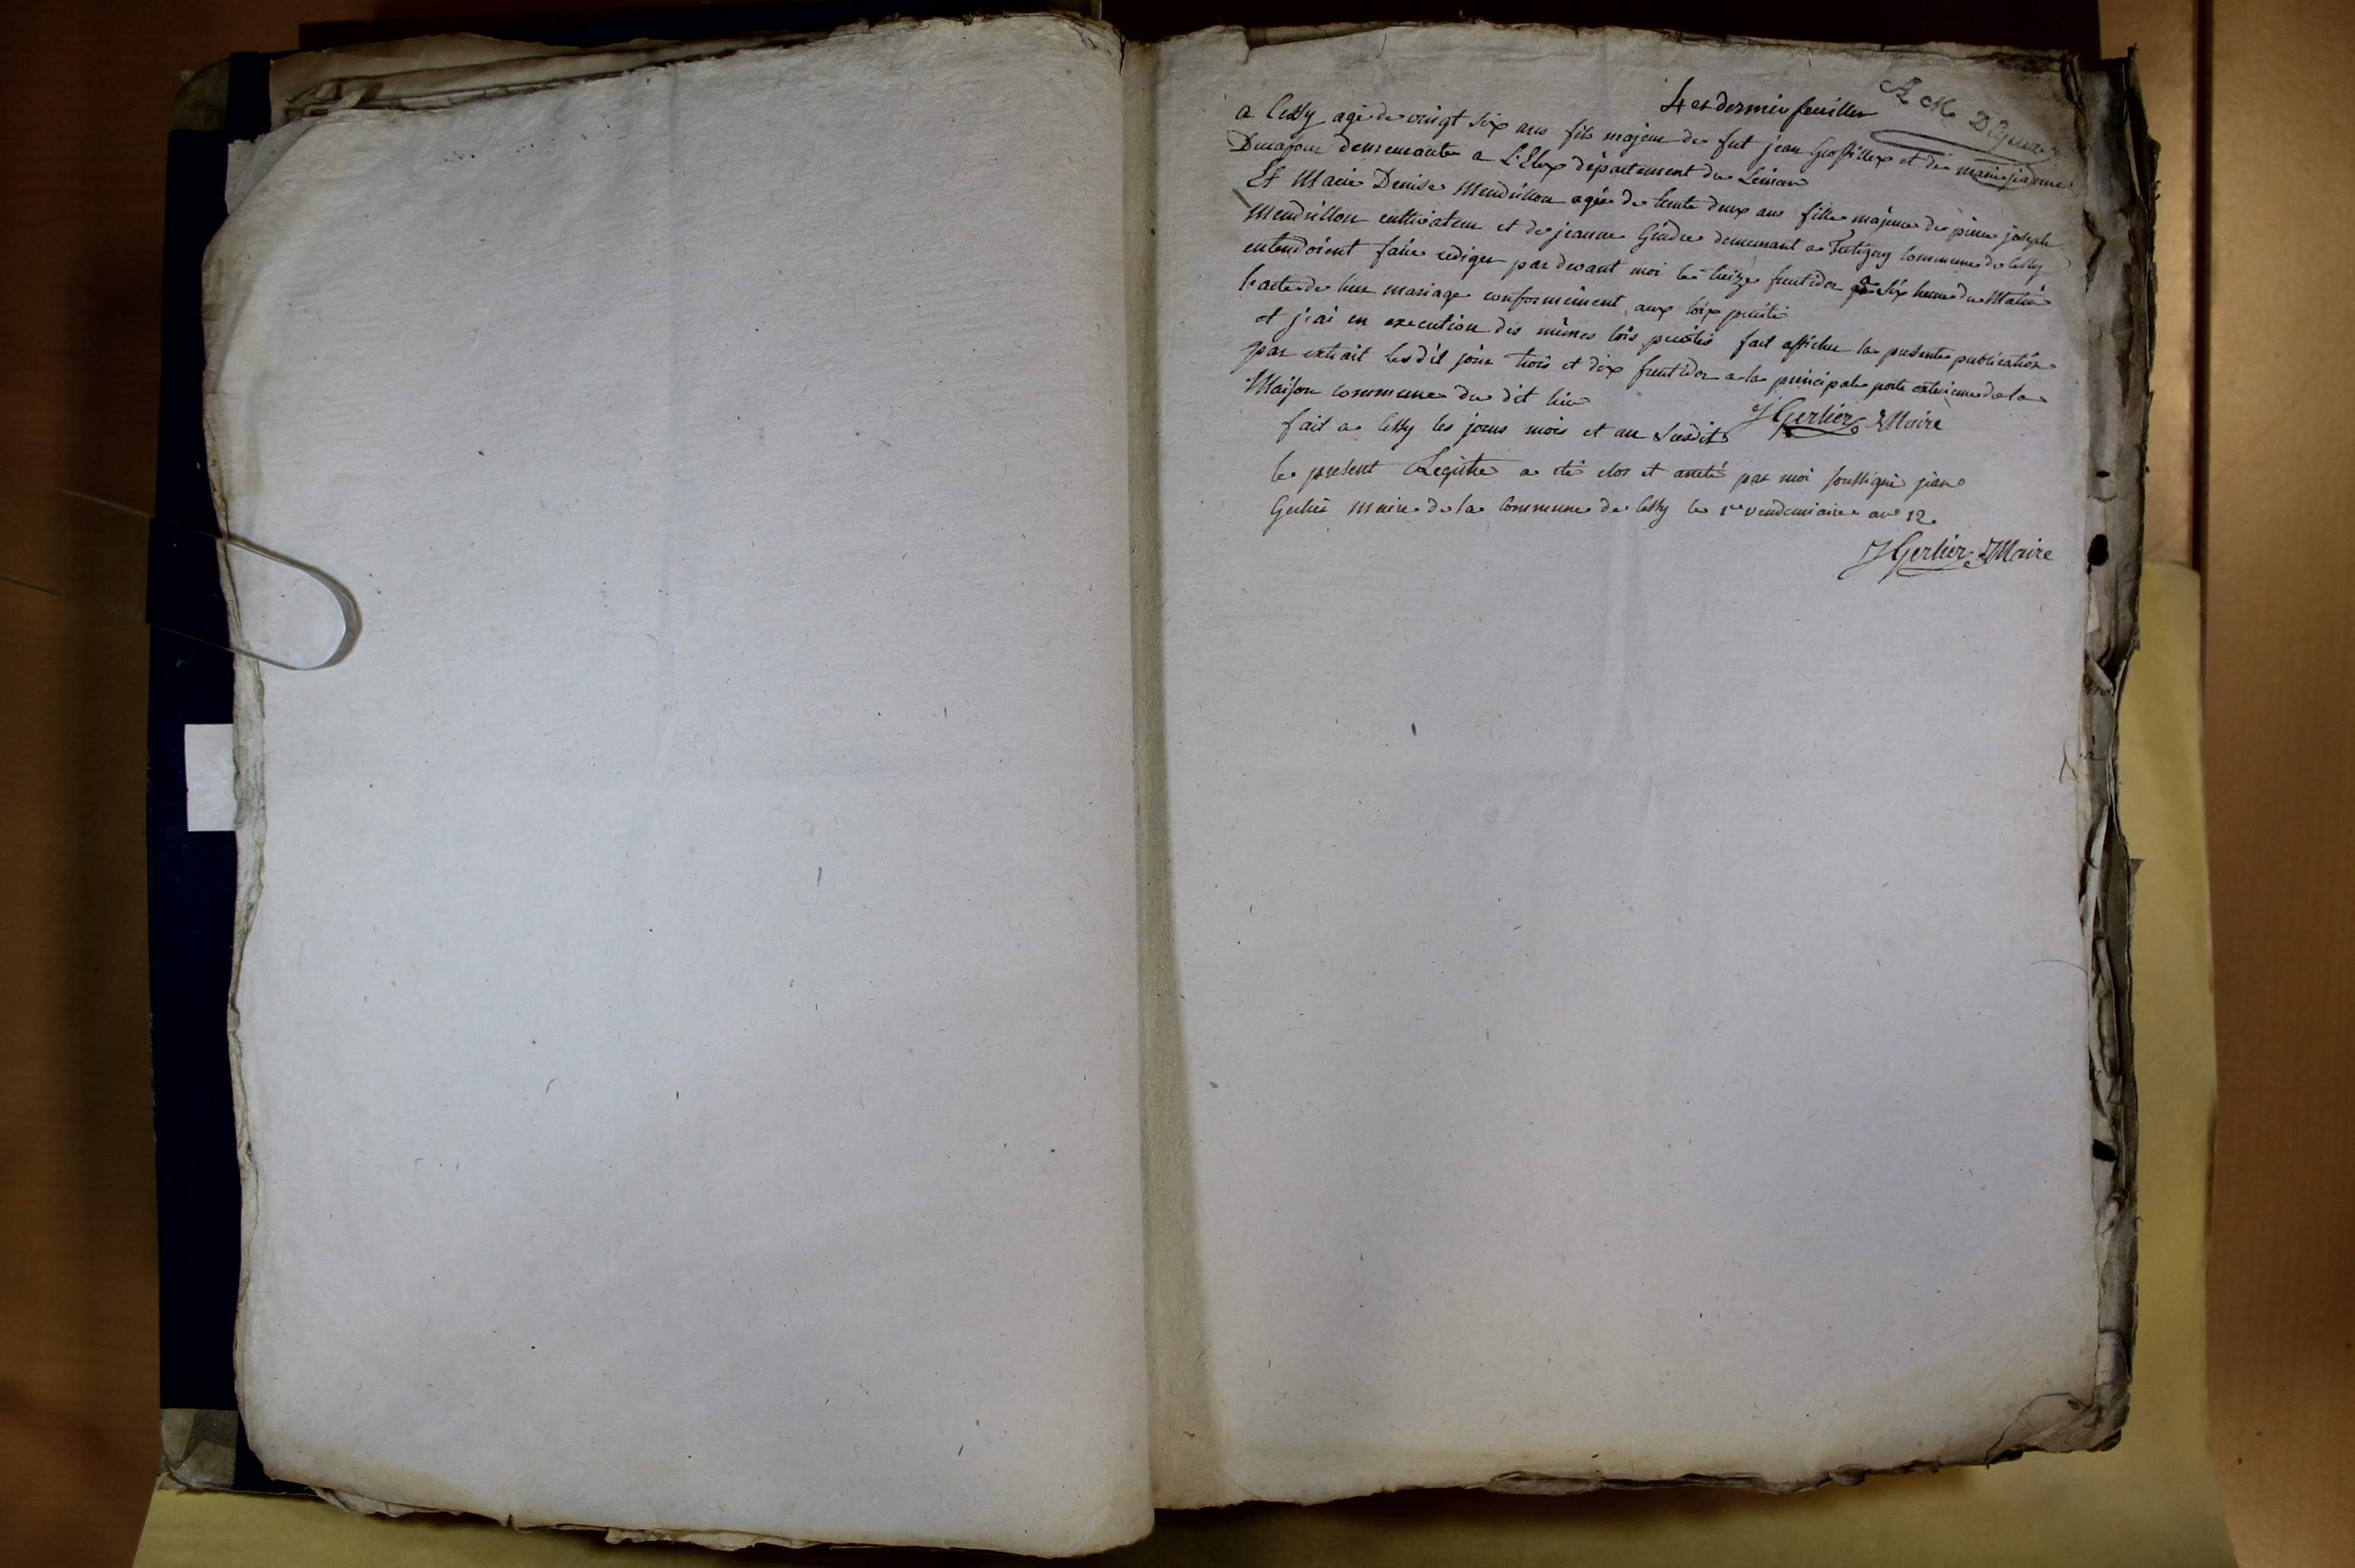 4 et dernier feuillet
a Cessy agé de vingt six ans fils majeur de fut jean Grossillex et de marie jeanne
Dunajour demeurante a L'Elex département du Leman
Et Marie Denise Mendrillon agée de trente deux ans fille majeure de pierre joseph
Mendrillon cultivateur et de jeanne Gindre demeurant a Tutigny Commune de Cessy
entendoient faire rediger par devant moi le treize fructidor a six heure du Matin
l'acte de leur mariage conformément aux loix précité
et j'ai en execution des mêmes lois précités fait afficher la presente publication
par extrait les dit jour trois et dix fructidor a la principale porte exterieure de la
Maison commune du dit lieu
fait a Cessy les jours mois et an Susdit J Gerlier Maire
le present Registre a été clos et arreté par moi soussigné jean
Gerlier maire de la Commune de Cessy le 1er vendemiaire an 12
J Gerlier Maire